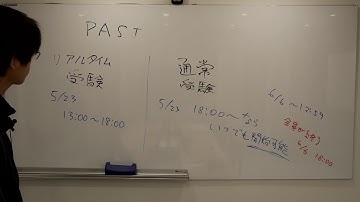 PAST
リアルタイム
受験
5/23
13:00〜18:00
通常
受験
5/23 18:00〜なら
いつでも開始可能
6/6 〜17:59
6/6 18:00